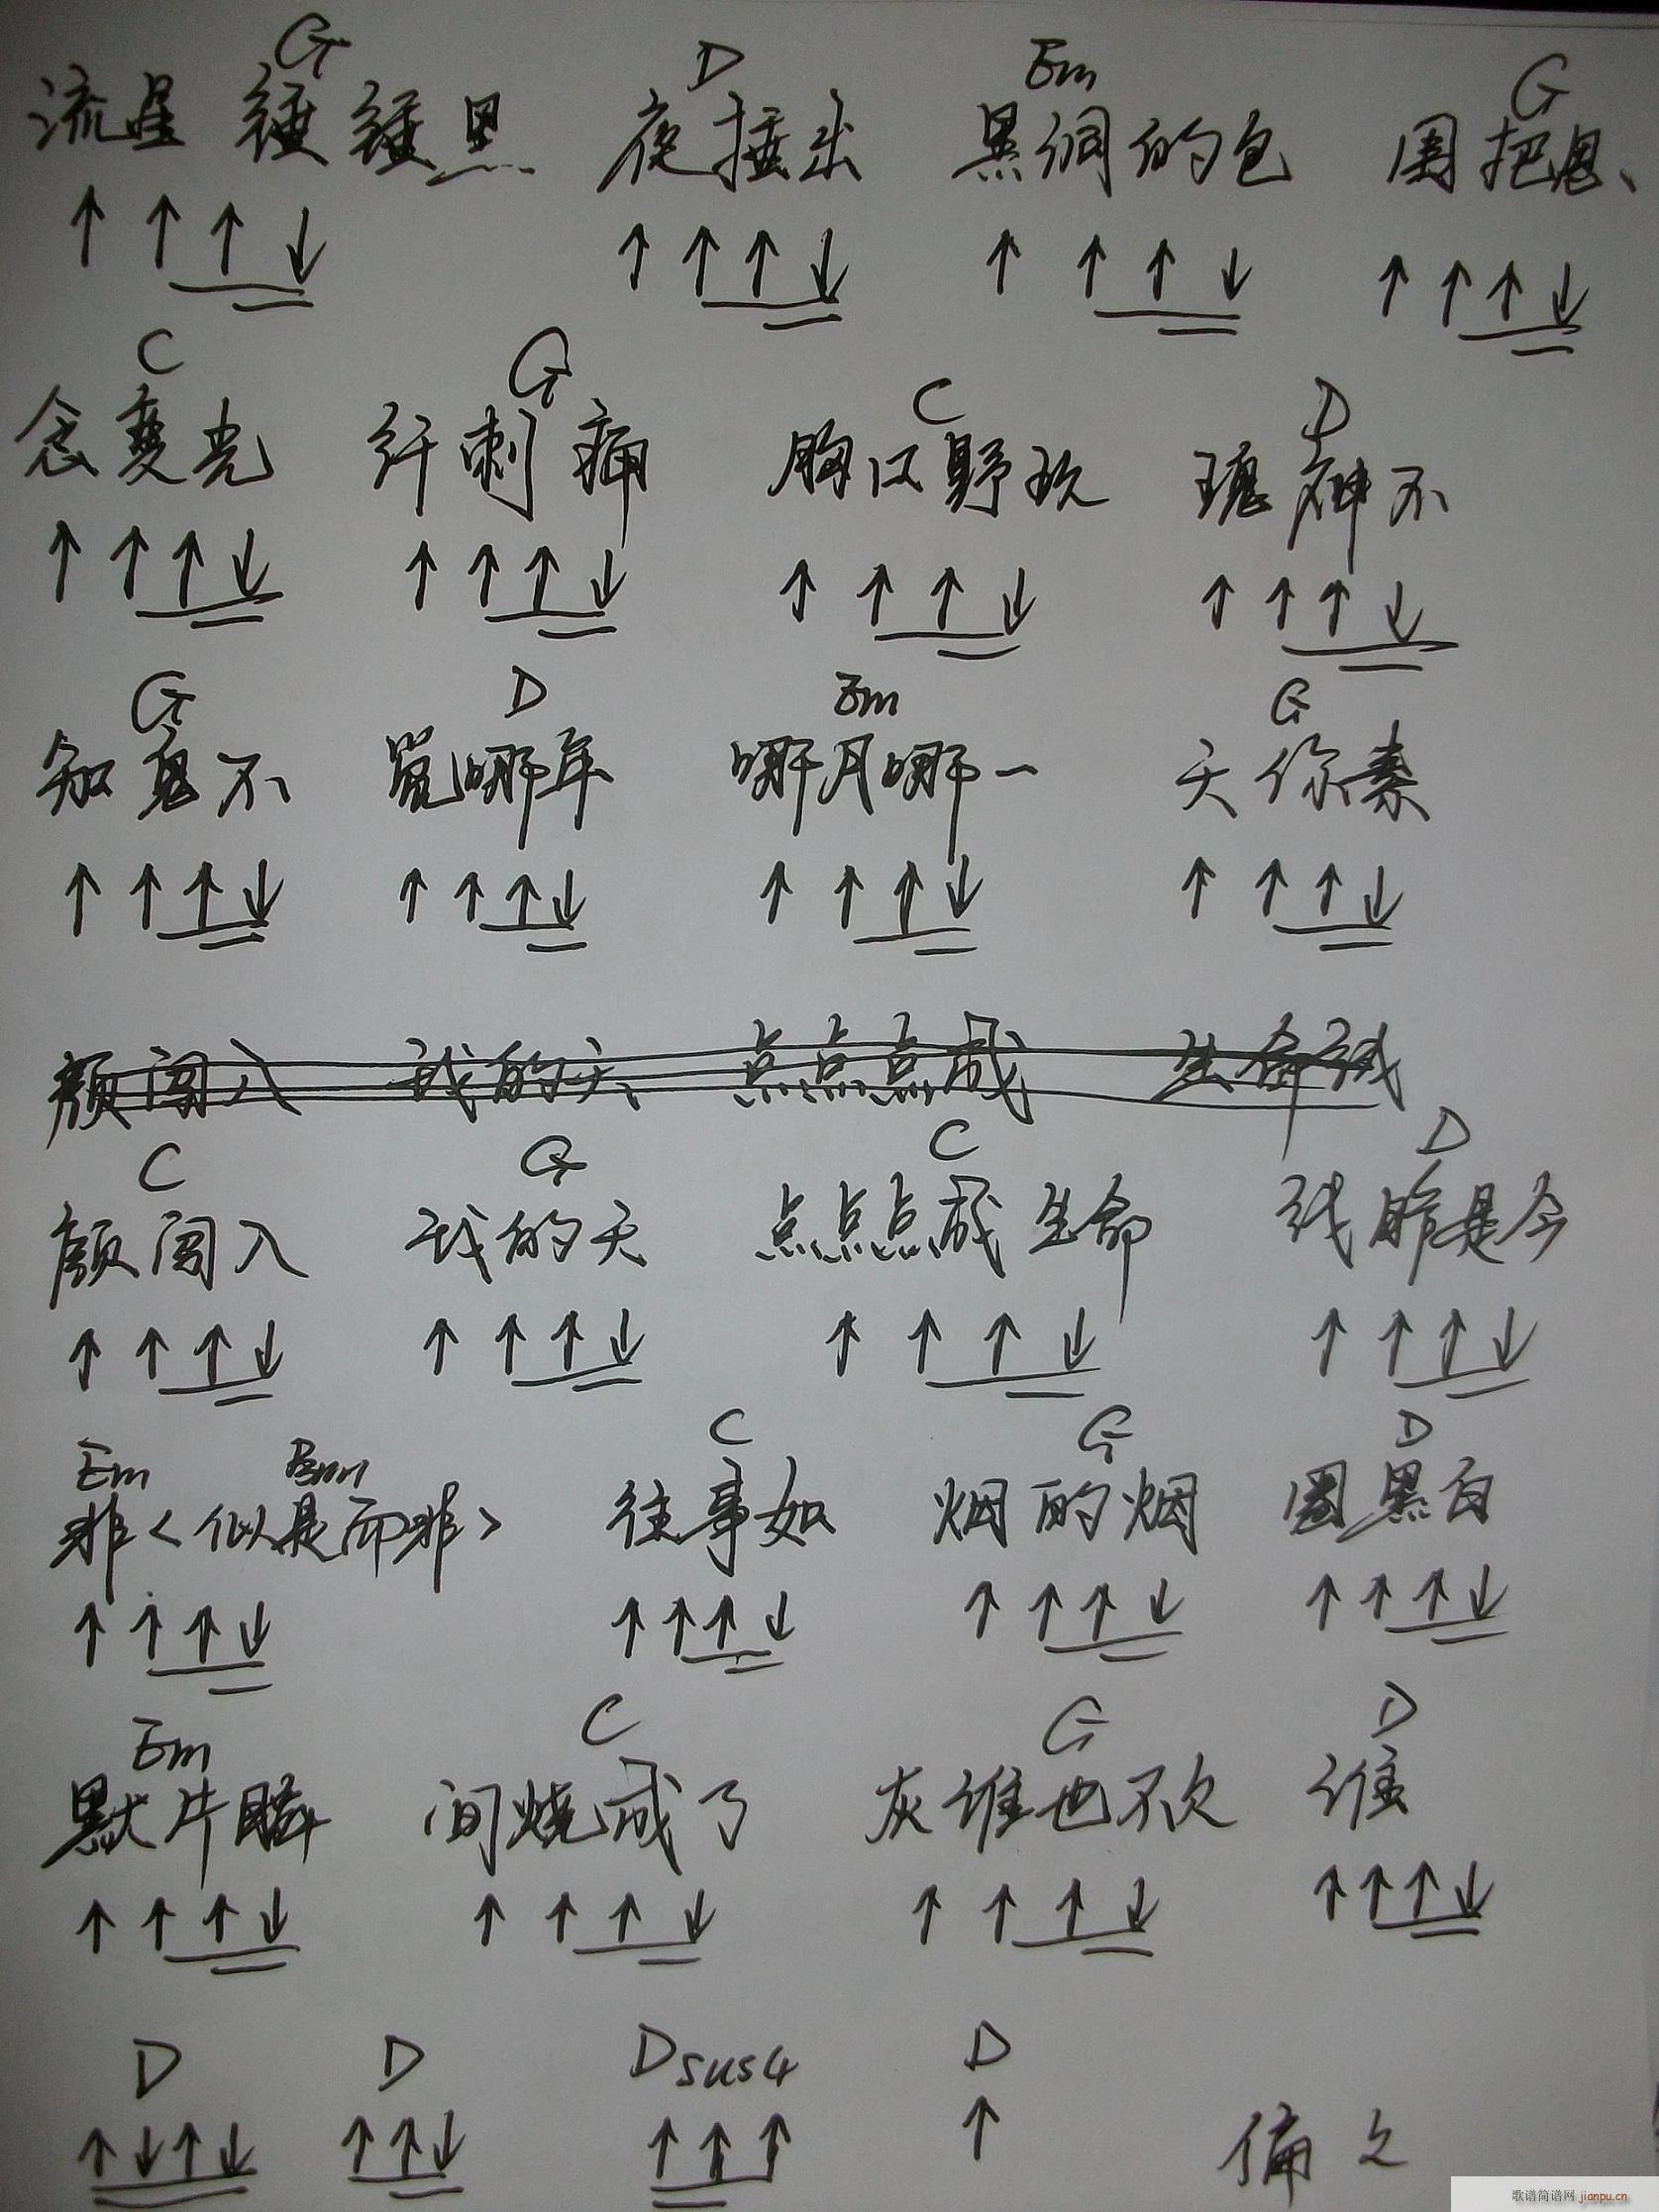 G D Em G
流星 锤锤黑 夜捶出 黑洞的包 围把思、
C G C D
念变光 纤刺痛 胸口野玫 瑰神不
G D Em G
知鬼不 觉哪年 哪月哪一 天你素
颜闯入 我的天 点点点成 生命线
C G C D
颜闯入 我的天 点点点成生命 线昨是今
Em Bm C G D
非<似是而非> 往事如 烟的烟 圈黑白
Em C G D
默片瞬 间烧成了 灰谁也不欠 谁
D D Dsus4 D
偏
歌谱简谱网 jianpu.cn